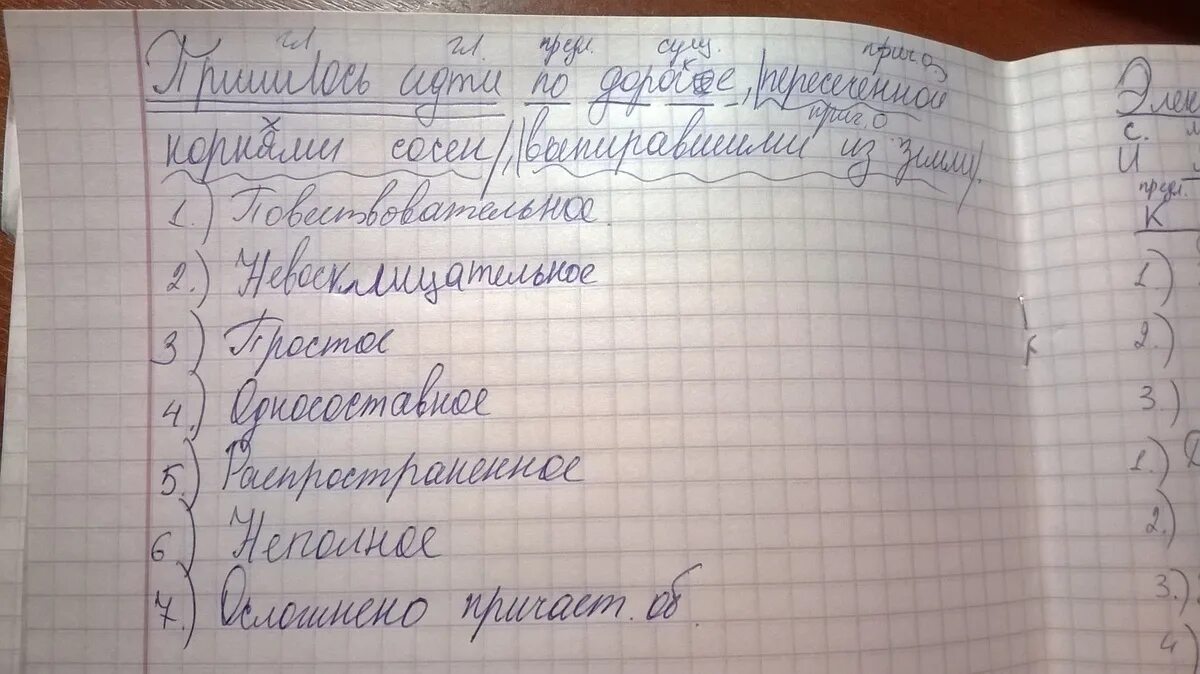 гл. гл. предл. сущ. прич.о
Пришлось идти по дорожке, пересеченной
х прич.о
корнями сосен, выпиравшими из земли.
1.) Повествовательное
2.) Невосклицательное
3) Простое
4.) Односоставное
5.) Распространенное
6) Неполное
7.) Осложнено причаст. об.
Элек
с.
И
предл.
К
1.)
2.)
3.)
1.)
2.)
3.)
4)